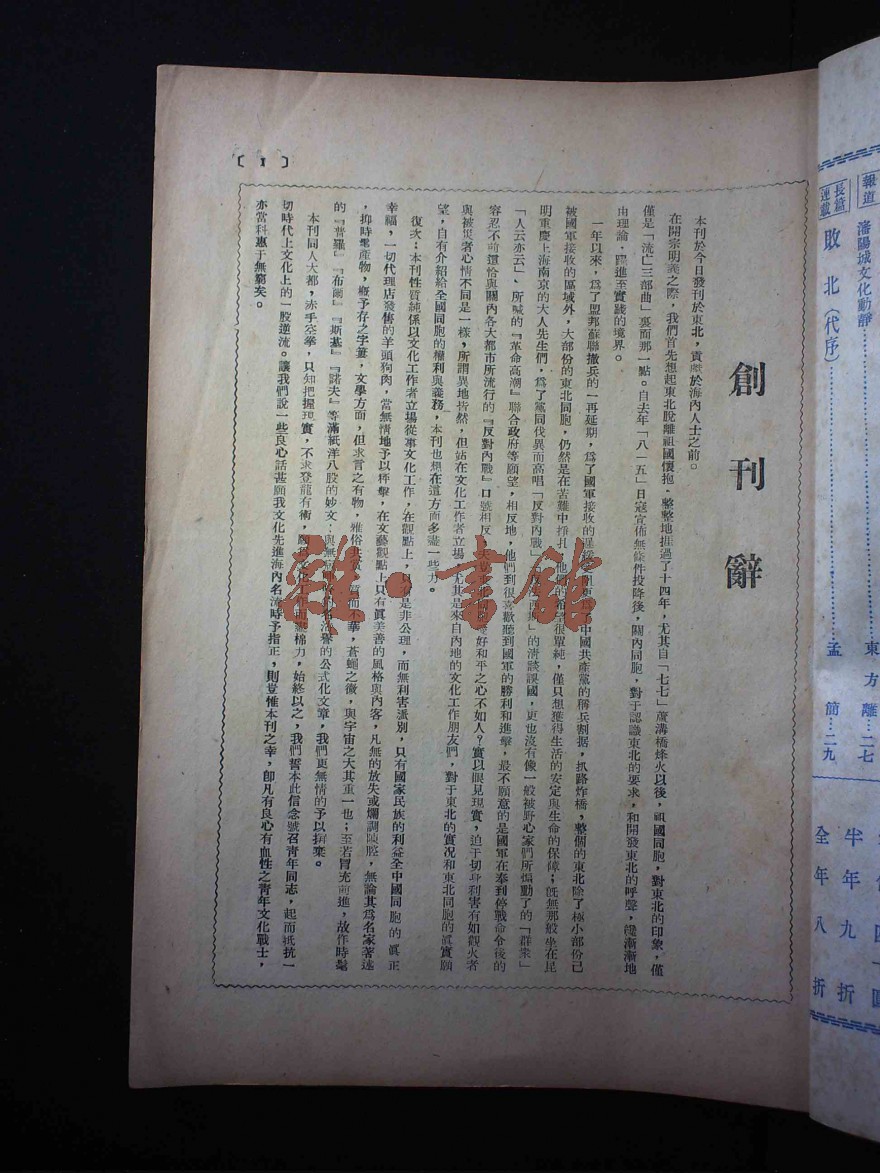 創刊辭
本刊於今日發刊於東北，貢獻於海內人士之前。
在開宗明義之際，我們首先想起東北脫離祖國懷抱，整整地捱過了十四年，尤其自「七七」蘆溝橋烽火以後，祖國同胞，對東北的印象，僅
僅是「流亡三部曲」裏面那一點。自去年「八一五」日寇宣佈無條件投降後，關內同胞，對于認識東北的要求，和開發東北的呼聲，纔漸漸地
由理論，躍進至實踐的境界。
一年以來，為了盟邦蘇聯撤兵的一再延期，為了國軍接收的
中國共產黨的稱兵割据，扒路炸橋，整個的東北除了極小部份已
被國軍接收的區域外，大部份的東北同胞，仍然是在苦難中掙扎，他們的希望很單純，僅只想獲得生活的安定與生命的保障；旣無那般坐在昆
明重慶上海南京的大人先生們，為了黨同伐異而高唱「反對內戰」
的清談誤國，更也沒有像一般被野心家們所煽動了的「群衆」
「人云亦云」、所喊的『革命高潮』聯合政府等願望，相反地，他們到很喜歡聽到國軍的勝利和進擊，最不願意的是國軍在奉到停戰命令後的
容忍不前這恰與關內各大都市所流行的『反對內戰』口號相反，
好和平之心不如人？實以眼見現實，迫于切身利害有如觀火者
與被災者心情不同是一樣，所謂異地皆然，但站在文化工作者立場，尤其是來自內地的文化工作朋友們，對于東北的實況和東北同胞的眞實願
望，自有介紹給全國同胞的權利與義務，本刊也想在這方面多盡一些力。
復次：本刊性質純係以文化工作者立場從事文化工作，在觀點上，只有是非公理，而無利害派別，只有國家民族的利益全中國同胞的眞正
幸福，一切代理店發售的羊頭狗肉，當無情地予以抨擊，在文藝觀點上只有眞美善的風格與內容，凡無的放失或爛調陳腔，無論其為名家著述
，抑時髦產物，概予存之字簍，文學方面，但求言之有物，雅俗共賞，質而不華，蒼蠅之微，與宇宙之大其重一也；至若冒充前進，故作時髦
的『普羅』『布爾』『斯基』『諾夫』等滿紙洋八股的妙文：與無
的公式化文章，我們更無情的予以摒棄。
本刊同人大都，赤手空拳，只知把握現實，不求登龍有術，願為文化工作而盡棉力，始終以之，我們誓本此信念號召青年同志，起而抵抗一
切時代上文化上的一股逆流。讓我們說一些良心話甚願我文化先進海內名流時予指正，則豈惟本刊之幸，卽凡有良心有血性之青年文化戰士，
亦當科惠于無窮矣。
〔1〕
雜·書館
報道
瀋陽城文化動靜
東方離…二七
長篇連載
敗北（代序）
孟節…二九
半年九折
全年八折